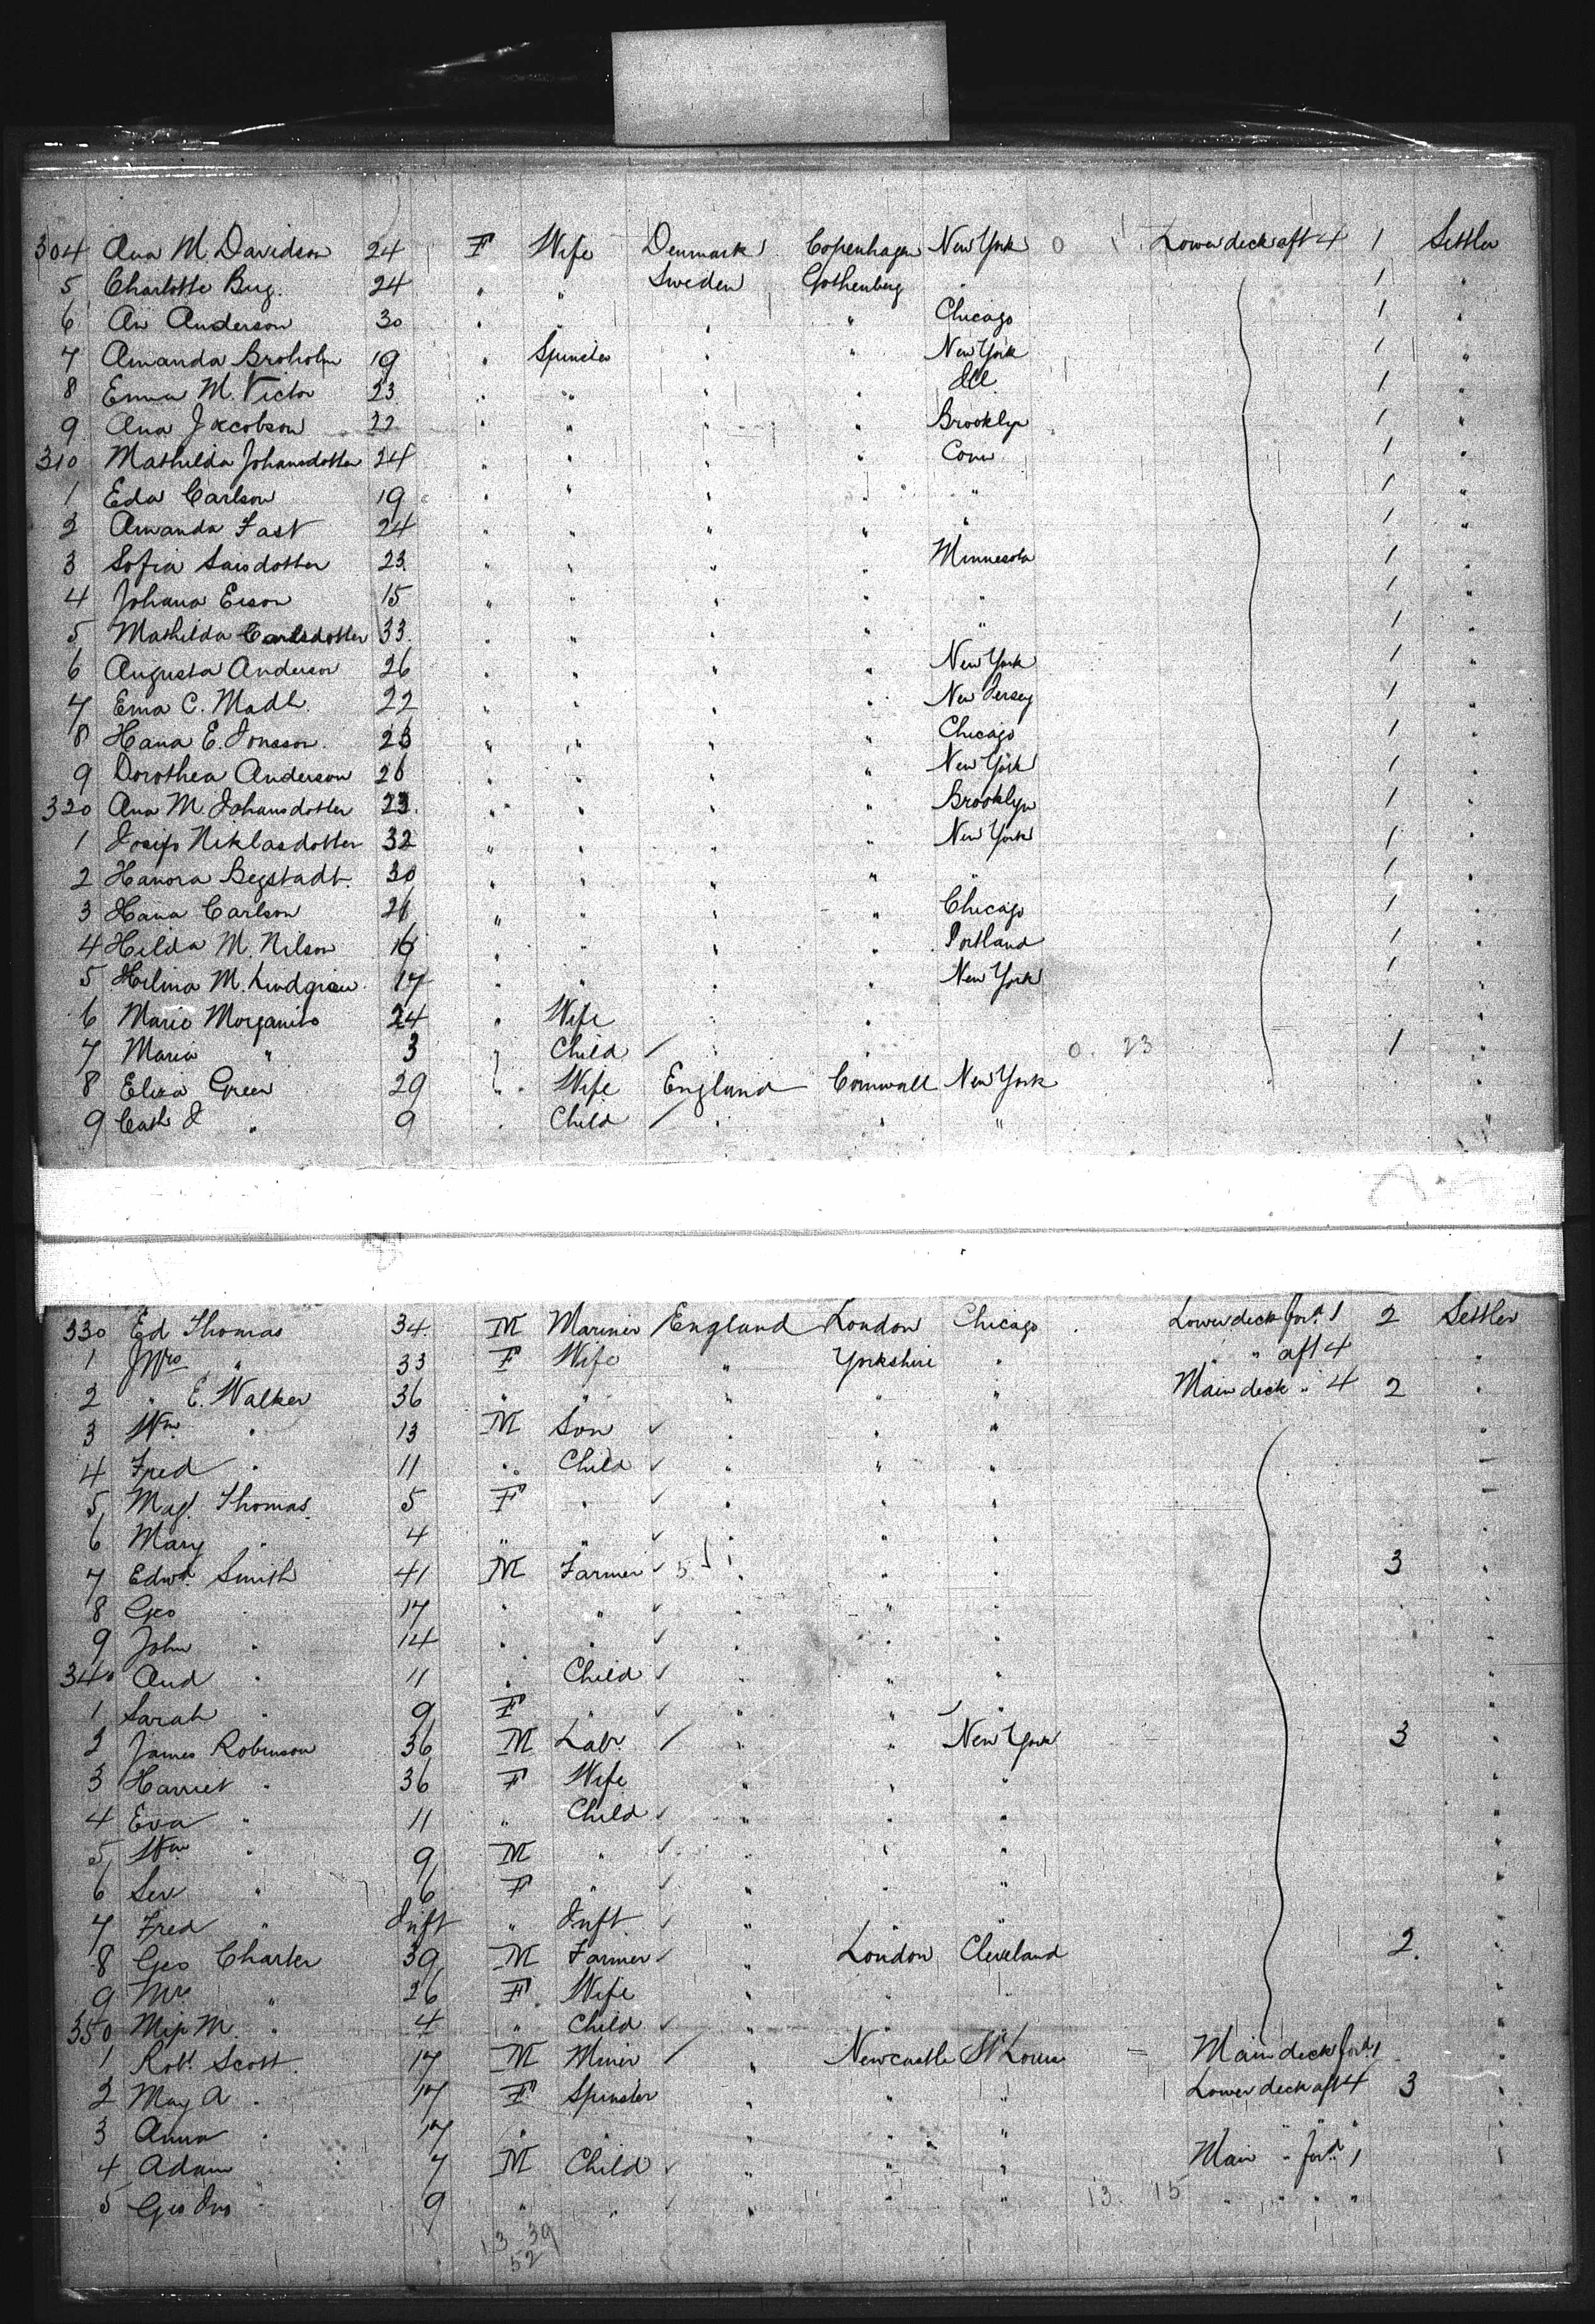 304 Ana M. Davidson 24 F Wife Denmark Copenhagen New York 0 Lower deck aft 4 1 Settler
5 Charlotte Burg. 24 " " Sweden Gothenberg " 1 "
6 An Anderson 30 " " " " Chicago 1 "
7 Amanda Broholm 19 " Spinster " " New York 1 "
8 Emma M. Victor 23 " " " " Ill 1 "
9 Ana Jacobson 22 " " " " Brooklyn 1 "
310 Mathilda Johansdotter 24 " " " " Conn 1 "
1 Eda Carlson 19 " " " " " 1 "
2 Amanda Fast 24 " " " " " 1 "
3 Sofia Larsdotter 23 " " " " Minnesota 1 "
4 Johana Eison 15 " " " " " 1 "
5 Mathilda Carlsdotter 33 " " " " " 1 "
6 Augusta Anderson 26 " " " " New York 1 "
7 Erna C. Madl. 22 " " " " New Jersey 1 "
8 Hana E. Jonsson. 23 " " " " Chicago 1 "
9 Dorothea Anderson 26 " " " " New York 1 "
320 Ana M. Johansdotter 23 " " " " Brooklyn 1 "
1 Niklasdotter 32 " " " " New York 1 "
2 Hanora Begstadt. 30 " " " " " 1 "
3 Hana Carlson 26 " " " " Chicago 1 "
4 Hilda M. Nilson 16 " " " " Portland 1 "
5 Helina M. Lindgren 17 " " " " New York 1 "
6 Marie 24 " Wife " " "
7 Maria " 3 " Child / " " 0. 23 1 "
8 Eliza Green 29 " Wife England Cornwall New York "
9 Cath J " 9 " Child / " " " "
330 Ed Thomas 34 M Mariner / England London Chicago Lower deck for.d 1 2 Settler
1 Mrs " 33 F Wife " Yorkshire " " " aft 4 "
2 " E. Walker 36 " " " " " Main deck " 4 2 "
3 Wm. " 13 M Son ✓ " " " "
4 Fred " 11 " Child ✓ " " " "
5 Magt. Thomas 5 F " ✓ " " " "
6 Mary " 4 " " ✓ " " " "
7 Edwd. Smith 41 M Farmer ✓ 5 " " " 3 "
8 Geo " 17 " " ✓ " " " "
9 John " 14 " " ✓ " " " "
340 And " 11 " Child ✓ " " " "
1 Sarah " 9 F " ✓ " " " "
2 James Robinson 36 M Labr. / " " New York 3 "
3 Harriet " 36 F Wife " " " "
4 Eva " 11 " Child ✓ " " " "
5 Wm " 9 M " ✓ " " " "
6 " 6 F " ✓ " " " "
7 Fred " Inft " Inft ✓ " " " "
8 Geo Charter 39 M Farmer ✓ " London Cleveland 2 "
9 Mrs " 26 F Wife " " " "
350 Miss M. " 4 " Child ✓ " " " "
1 Robt. Scott 17 M Miner / " Newcastle St Louis Main deck for.d 1 "
2 May A " 17 F Spinster " " " Lower deck aft 4 3 "
3 Anna " 17 " " " " " " " " "
4 Adam " 7 M Child ✓ " " " Main " for.d 1 "
5 Geo Jno " 9 " " ✓ " " " 13. 15 " " " "
13 39
52